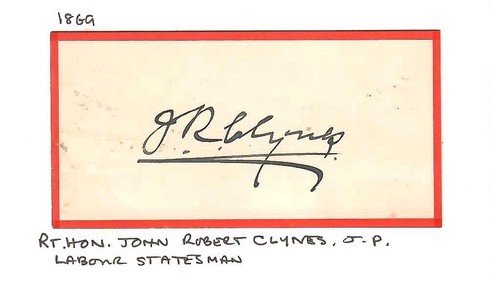 1869
J. R. Clynes.
RT. HON. JOHN ROBERT CLYNES, J.P.
LABOUR STATESMAN